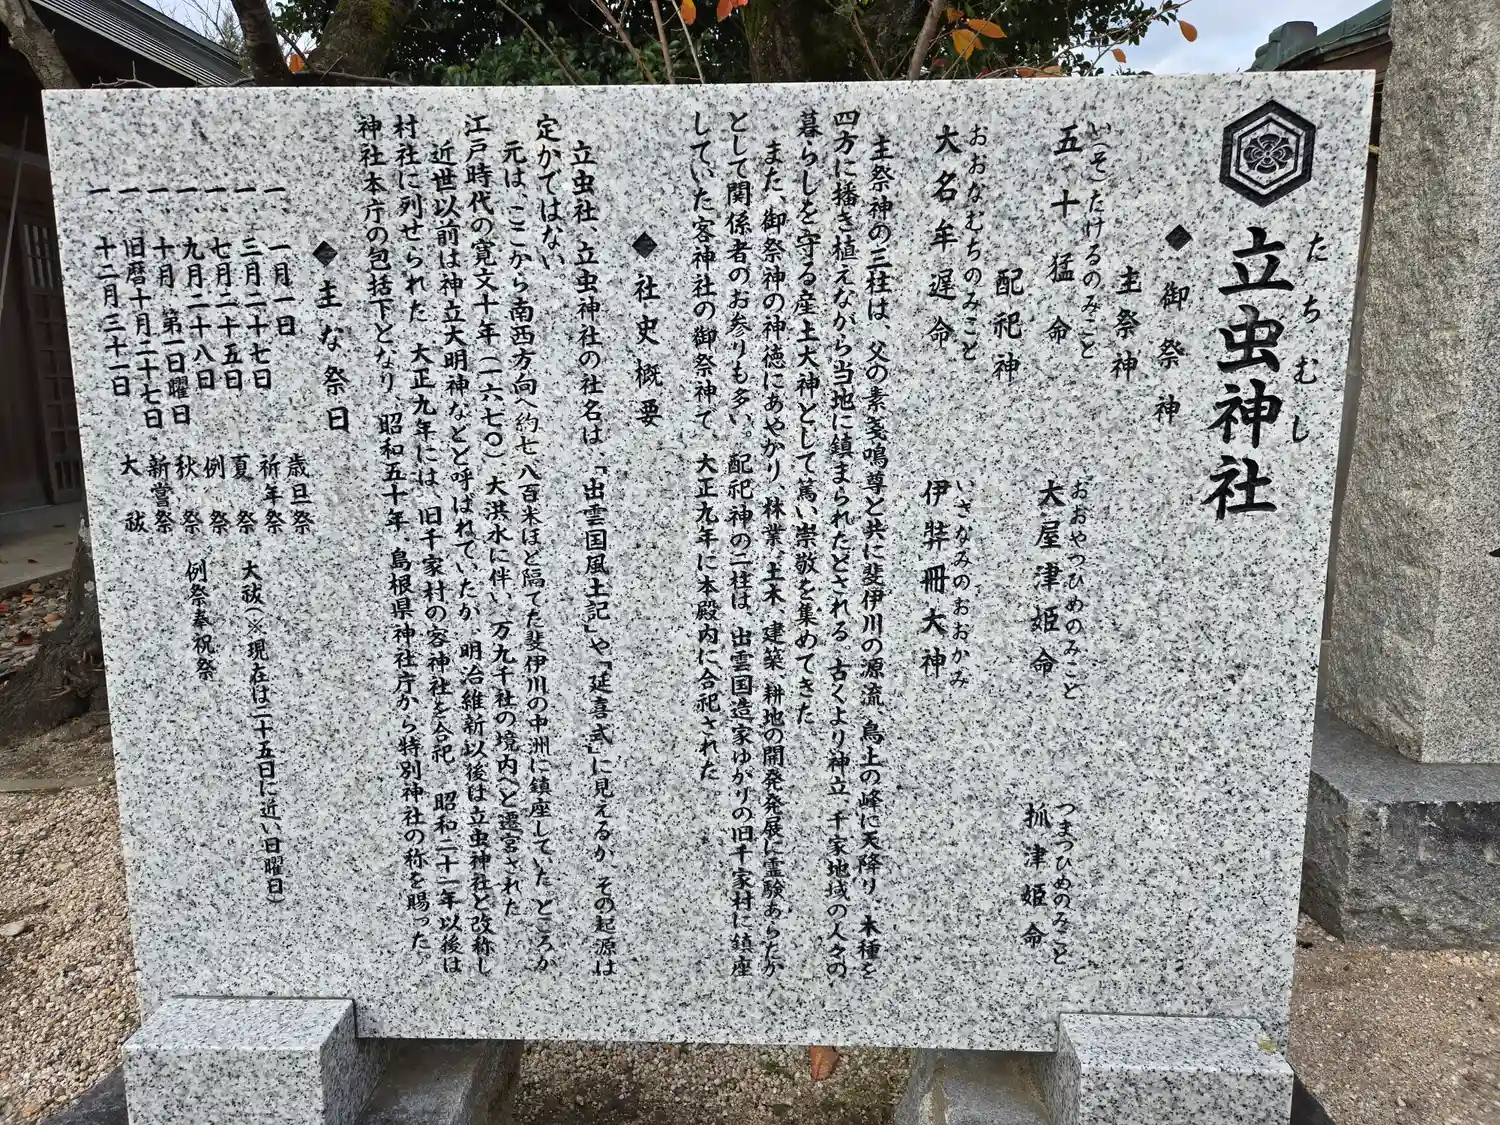 たちむし
立虫神社
◆御祭神
主祭神
い(そ)たけるのみこと
五十猛命
おおやつひめのみこと
大屋津姫命
つまつひめのみこと
抓津姫命
配祀神
おおなむちのみこと
大名牟遅命
いざなみのおおかみ
伊弉冊大神
主祭神の三柱は、父の素戔嗚尊と共に斐伊川の源流、鳥上の峰に天降り、木種を
四方に播き植えながら当地に鎮まられたとされる。古くより神立、千家地域の人々の
暮らしを守る産土大神として篤い崇敬を集めてきた。
また、御祭神の神徳にあやかり、林業、土木、建築、耕地の開発発展に霊験あらたか
として関係者のお参りも多い。配祀神の二柱は、出雲国造家ゆかりの旧千家村に鎮座
していた客神社の御祭神で、大正九年に本殿内に合祀された。
◆社史概要
立虫社、立虫神社の社名は、「出雲国風土記」や「延喜式」に見えるが、その起源は
定かではない。
元は、ここから南西方向へ約七、八百米ほど隔てた斐伊川の中洲に鎮座していた。ところが
江戸時代の寛文十年(一六七〇)、大洪水に伴い、万九千社の境内へと遷宮された。
近世以前は神立大明神などと呼ばれていたが、明治維新以後は立虫神社と改称し
村社に列せられた。大正九年には、旧千家村の客神社を合祀。昭和二十一年以後は
神社本庁の包括下となり、昭和五十年、島根県神社庁から特別神社の称を賜った。
◆主な祭日
一、一月一日 歳旦祭
一、三月二十七日 祈年祭
一、七月二十五日 夏祭 大祓(※現在は二十五日に近い日曜日)
一、九月二十八日 例祭
一、十月 第一日曜日 秋祭 例祭奉祝祭
一、旧暦十月二十七日 新嘗祭
一、十二月三十一日 大祓